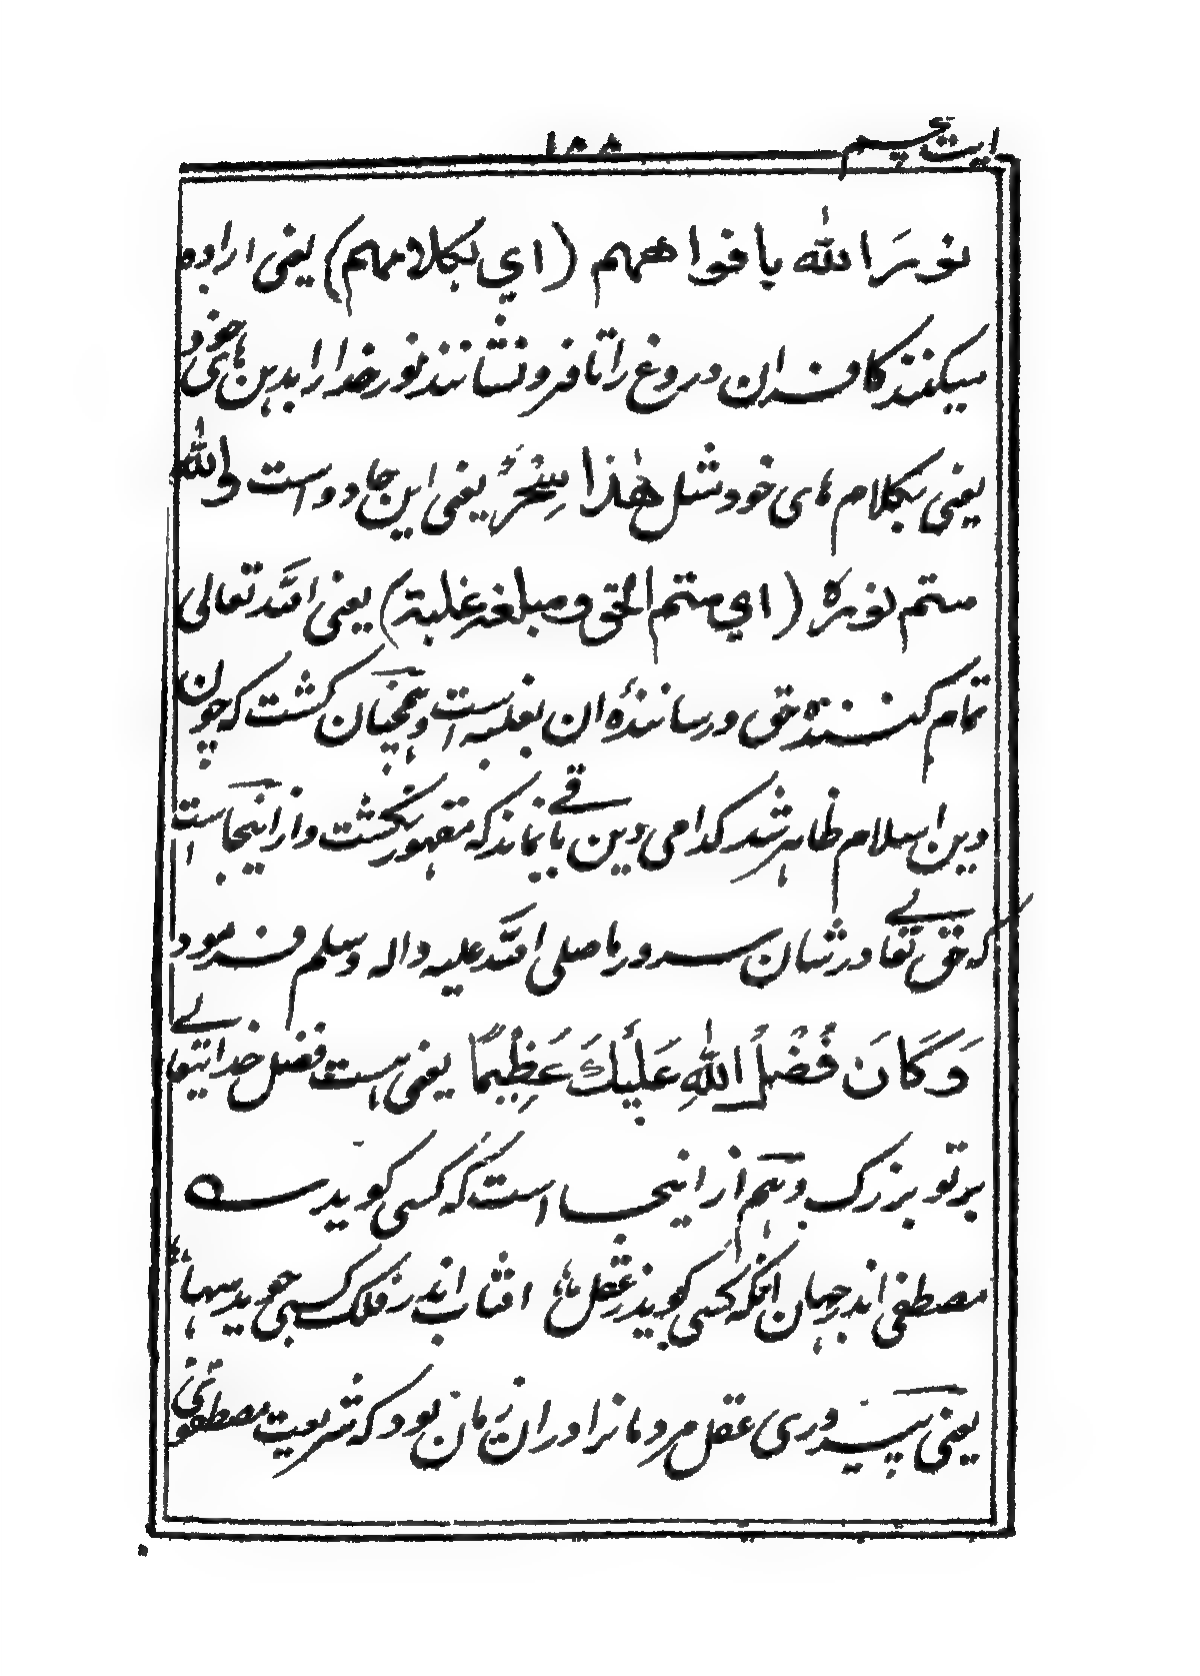 ایت پنجم ۱۵۵
نورَ اللّٰه بافواههم (اي بكلامهم) یعنی اراده
میکنند کافران دروغ را تا فرو نشانند نور خدا را بدهن های خود
یعنی بکلام های خود مثل هٰذا سِحْرٌ یعنی این جادو است واللّٰه
متم نوره (اي متم الحق ومبلغه غلبة) یعنی الله تعالی
تمام کننده حق و رسانندهٔ ان بغلبه است وهمچنان گشت که چون
دین اسلام ظاهر شد کدامی دین باقے نماند که مقهور نگشت و از اینجا است
که حق تعالے در شان سرور ما صلی الله علیه و اله وسلم فرمود
وَكَانَ فَضْلُ اللّٰهِ عَلَيْكَ عَظِيْمًا یعنی است فضل خدایتعالے
بر تو بزرگ وهم از اینجا است که کسی گوید
مصطفی اندر جهان انگه کسی گوید ز عقل افتاب اندر فلک کسی جوید سها
یعنی پیروری عقل مردمانرا در ان زمان بود که شریعت مصطفوی